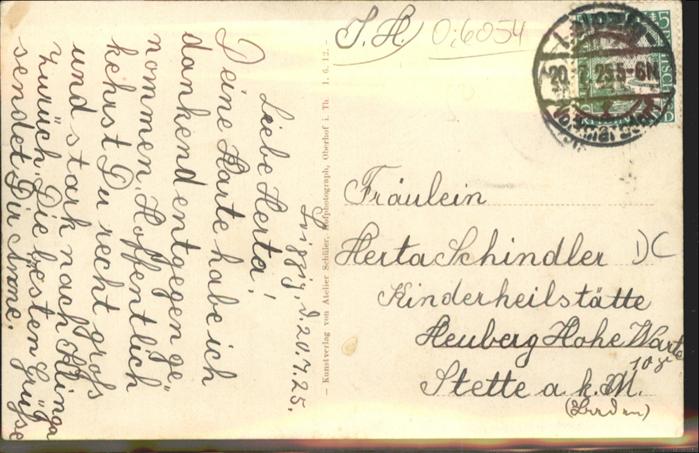 J. H. 0:6054
20.7.25.5-6N
Leipzig, d. 20.7.25.
Liebe Herta!
Deine Karte habe ich
dankend entgegen ge"
nommen. Hoffentlich
kehrst Du recht gross
und stark nach Klinga
zurück. Die besten Grüsse
sendet Dir Anne.
– Kunstverlag von Atelier Schüler, Hofphotograph, Oberhof i. Th. 1. 6. 12. –
Fräulein
Herta Schindler
Kinderheilstätte
Heuberg Hohe Warte
Stette a. k. M.
(Baden)